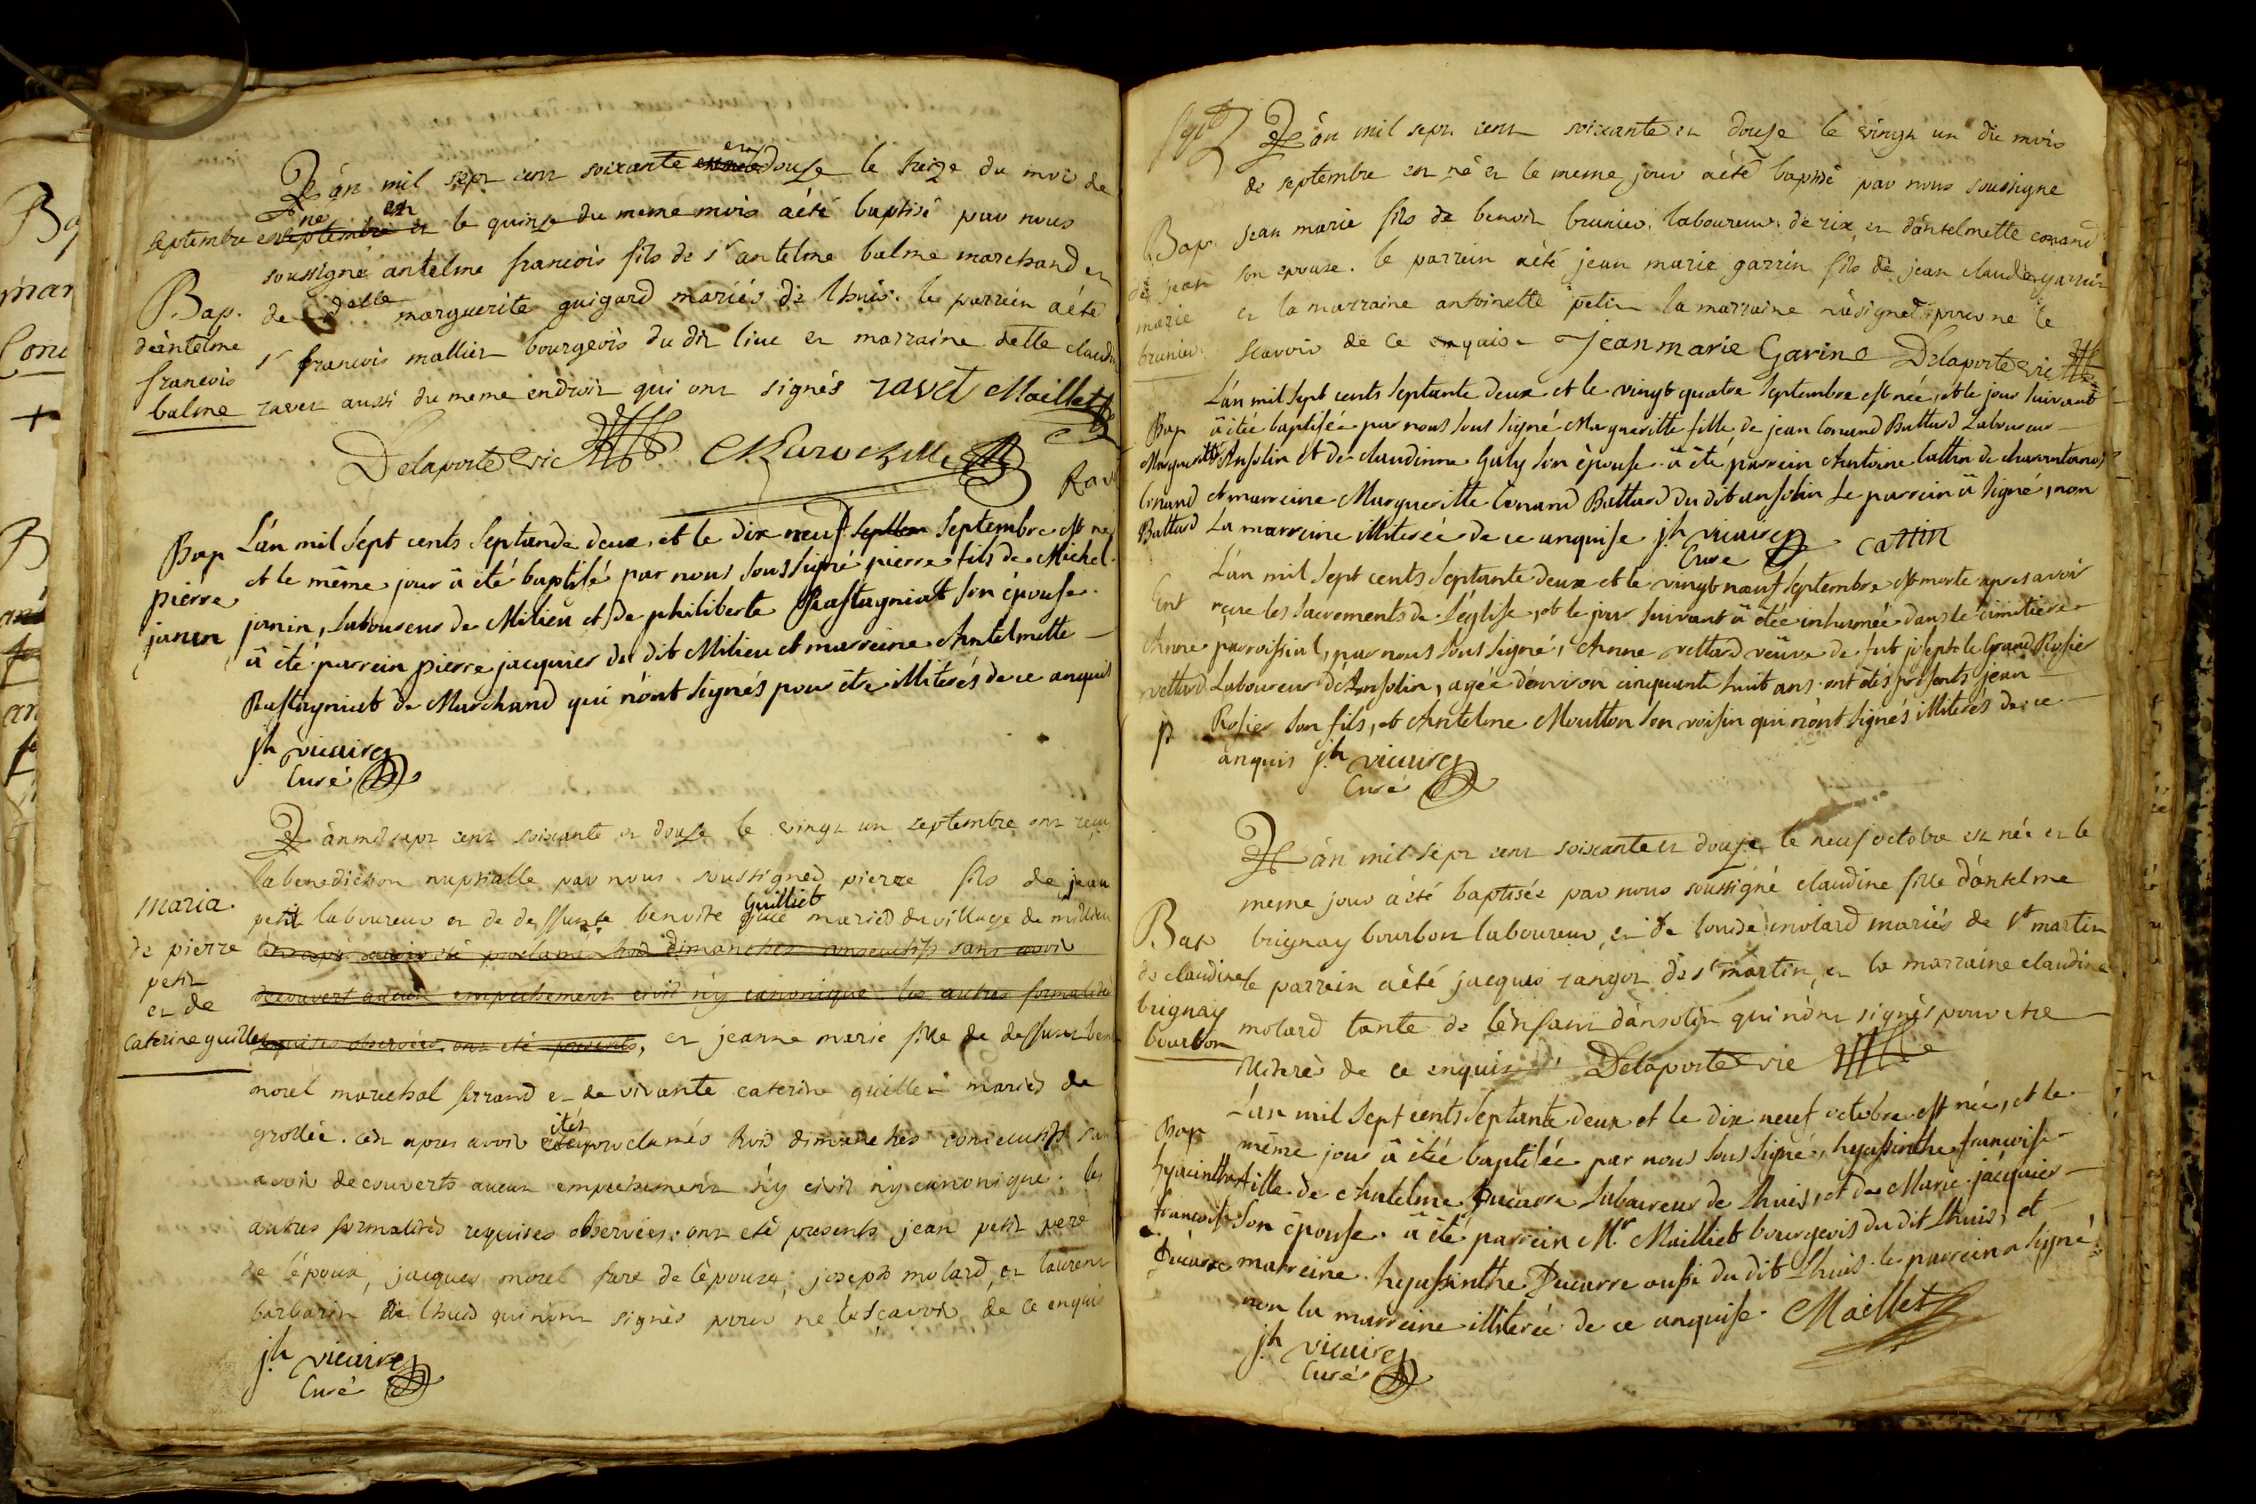 L'an mil sept cent soixante et douze le treize du mois de
septembre est né et le quinze du meme mois a été baptisé par nous
soussigné antelme francois fils de Sr antelme balme marchand et
de delle marguerite guigard mariés de lhuis. le parrein a été
sr francois mallier bourgeois du dit lieu et marraine delle claudine
ravet aussi du meme endroit qui ont signés ravet Maillet
Bap.
d'antelme
francois
balme
Delaporte vic
Rav
Bap
pierre
janin
L'an mil Sept cents Septande deux et le dix neuf Septembre est né
et le même jour â été baptisé par nous sous signé pierre fils de Michel
janin, Laboureur de Milieu et de philiberte Rastagniat son épouse.
â été parrein pierre jacquier du dit Milieu et marreine Antelmette
Rastagniat de Marchand qui n'ont signés pour être illiterés de ce anquis
jh vicaire
Curé
L'an mil sept cent soixante et douze le vingt un septembre ont reçu
la benediction nuptialle par nous soussigned pierre fils de jean
petit laboureur et de deffunte benoite Guilliet mariéd du village de millieu
et apres avoir été proclamé trois dimanches consecutifs sans avoir
decouvert aucun empechement civil n'y canonique les autres formalités
requises observées ont été presents, et jeanne marie fille de deffunt ben
morel marechal ferrand et de vivante caterine guillet mariéd de
grolée. cest apres avoir étés proclamés trois dimanches consecutifs sans
avoir decouverts aucun empechement n'y civil n'y canonique. les
autres formalités requises observées. ont été presents jean petit pere
de l'époux, jacques morel frere de l'épouse, joseph molard, et laurent
barbarin de lhuis qui n'ont signés pour ne le sçavoir de ce enquis
maria.
de pierre
petit
et de
caterine guillet
jh vicaire
Curé
L'an mil sept cent soixante et douze le vingt un du mois
de septembre est né et le meme jour a été baptisé par nous soussigne
jean marie fils de benoit brunier laboureur de rix et d'antelmette conand
son epouse. le parrein a été jean marie garrin fils de jean claude garrin
et la marraine antoinette petit la marraine n'a signed pour ne le
scavoir de ce enquise Jean marie Garine Delaporte vic
Bap.
de jean
marie
brunier
L'an mil Sept cents Septante deux et le vingt quatre Septembre est née, et le jour suivant
â étée baptisée par nous sous signé Margueritte fille de jean Conand Battard Laboureur
d'Ansolin et de claudinne Galy son épouse. â été parrein Antoine Cattin de charantonod
et marreine Margueritte Conand Battard du dit ansolin Le parrein â signé, non
La marreine illiterée de ce anquise jh vicaire cattin
Curé
Bap
Margueritte
Conand
Battard
L'an mil Sept cents Septante deux et le vingt neuf Septembre est morte apres avoir
reçue les sacrements de L'église, et le jour suivant â étée inhumée dans le cimitiere
parroissial, par nous sous signé, Anne vettard veüve de fut joseph le Grand Rosier
Laboureur d'Ansolin, agée d'environ cinquante huit ans. ont étés présents jean
Rosier son fils, et Antelme Moutton son voisin qui n'ont signés illiterés de ce
anquis jh vicaire
Curé
Ent
Anne
vettard
p
L'an mil sept cent soixante et douze le neuf octobre est née et le
meme jour a été baptisée par nous soussigné claudine fille d'antelme
brignay bourbon laboureur, et de louise molard mariés de st martin
le parrein a été jacques rangot de st martin, et la marraine claudine
molard tante de l'enfant d'ansolin qui n'ont signés pour etre
illiterés de ce enquis Delaporte vic
Bap
de claudine
brignay
bourbon
L'an mil Sept cents Septante deux et le dix neuf octobre est née, et le
même jour â étée baptisée par nous sous signé, hyassinthe francoise
fille de Antelme Ducarre Laboureur de Lhuis, et de Marie jacquier
Son épouse. â été parrein Mr Mailliet bourgeois du dit Lhuis, et
marreine hyassinthe Ducarre aussi du dit Lhuis. le parrein a signé
non la marreine illiterée de ce anquise. Maillet
jh vicaire
Curé
Bap
hyacinthe
francoise
Ducarre